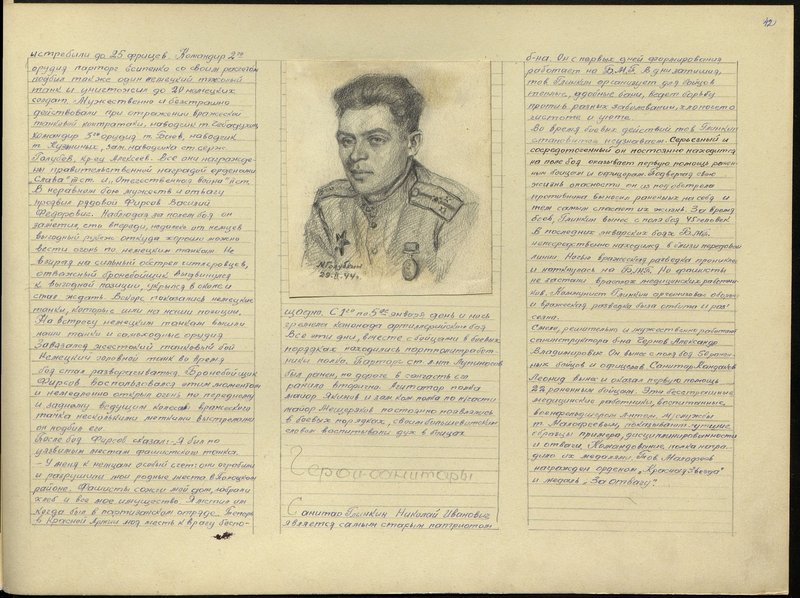 42
истребили до 25 фрицев. Командир 2го
орудия парторг Осипенко со своим расчетом
подбил также один немецкий тяжелый
танк и уничтожил до 20 немецких
солдат. Мужественно и бесстрашно
действовали при отражении вражеской
танковой контратаки, наводчик т.
командир 3го орудия т. Баев, наводчик
т. зам. наводчика ст. серж.
Голубев, кр-ец Алексеев. Все они награжде-
ны правительственной наградой орденами
Слава" IIIст. и „Отечественная война" IIст.
В неравном бою мужество и отвагу
проявил рядовой Фирсов Василий
Федорович. Наблюдая за полем боя он
заметил, что впереди, недалеко от немцев
выгодный рубеж откуда хорошо можно
вести огонь по немецким танкам. Не
взирая на сильный обстрел гитлеровцев,
отважный бронебойщик выдвинулся
к выгодной позиции, укрылся в окопе и
стал ждать. Вскоре показались немецкие
танки, которые шли на наши позиции.
На встречу немецким танкам вышли
наши танки и самоходные орудия
Завязался жестокий танковый бой
Немецкий головной танк во время
боя стал разворачиваться. Бронебойщик
Фирсов воспользовался этим моментом
и немедленно открыл огонь по переднему
и заднему ведущим колесам вражеского
танка несколькими меткими выстрелами
он подбил его.
После боя Фирсов сказал:- Я бил по
уязвимым местам фашистского танка.
- У меня к немцам особый счет: они ограбили
и разрушили мои родные места в
районе. Фашисты сожгли мой дом, забрали
хлеб и все мое имущество. Я мстил им
когда был в партизанском отряде. Теперь
в Красной Армии моя месть к врагу беспо-
М. Голубкин
29.II.44г.
щадна. С 1го по 5ое января день и ночь
гремела канонада артиллерийского боя
Все эти дни, вместе с бойцами в боевых
порядках находились партполитработ-
ники полка. Парторг ст. л-нт
был ранен, по дороге в санчасть его
ранило вторично. Агитатор полка
майор Якимов и зам. ком. полка по п/части
майор Мещеряков постоянно появлялись
в боевых порядках, своим большевистским
словом воспитывали дух в бойцах.
Герои-санитары
Санитар Глинкин Николай Иванович
является самым старым патриотом
б-на. Он с первых дней формирования
работает на БМП. В дни затишия,
тов Глинкин организует для бойцов
теплые, удобные бани, ведет борьбу
против разных заболеваний, хлопочет о
чистоте и уюте.
Во время боевых действий тов. Глинкин
становится неузнаваем. Серьезный и
сосредоточенный он постоянно находится
на поле боя оказывает первую помощь ранен-
ным бойцам и офицерам. Подвергая свою
жизнь опасности он из под обстрела
противника выносил раненных на себе и
тем самым спасает их жизнь. За время
боев, Глинкин вынес с поля боя 45 человек.
В последних январских боях БМП,
непосредственно находился в близи передовой
линии Ночью вражеская разведка проникла
и наткнулась на БМП. Но фашисты
не застали врасплох медицинских работни-
ков. Коммунист Глинкин организовал оборону
и вражеская разведка была отбита и рас-
сеяна.
Смело, решительно и мужественно работает
санинструктор б-на Чернов Александр
Владимирович Он вынес с поля боя 50 ранен-
ных бойцов и офицеров. Санитар Кандауров
Леонид вынес и оказал первую помощь
22м раненным бойцам. Эти бесстрашные
медицинские работники, воспитанные,
военфельдшером л-нтом м/службы
т. Малафеевым, показывают лучшие
образцы примера, дисциплинированности
и отваги. Командование, полка награ-
дило их медалями, а тов Малафеев
награжден орденом „Красная Звезда"
и медаль „За отвагу".